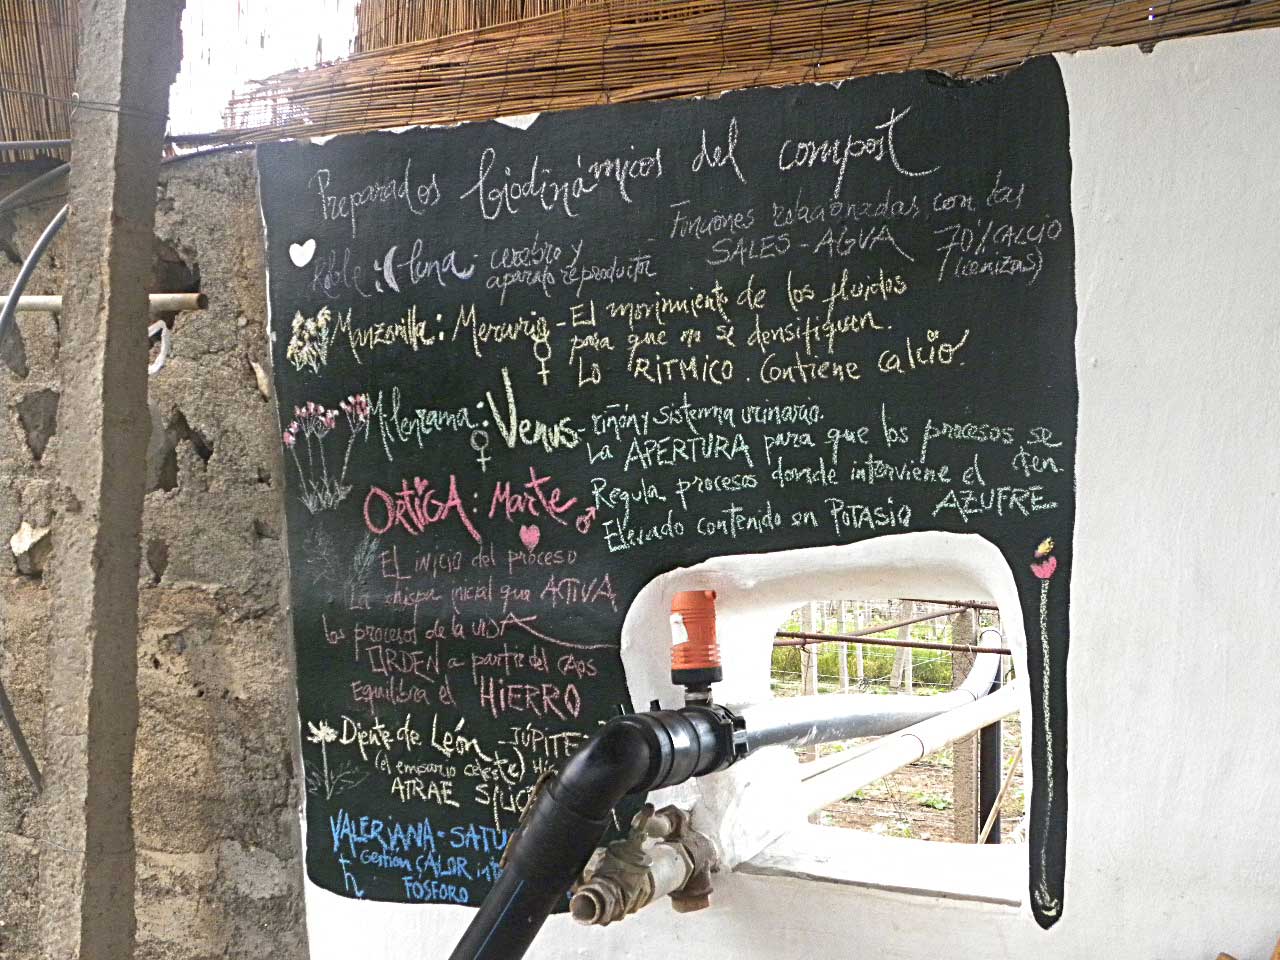 Preparados biodinámicos del compost
Roble: Luna - cerebro y aparato reproductor
- Funciones relacionadas con las
SALES - AGUA 70% CALCIO
(cenizas)
Manzanilla: Mercurio - El movimiento de los fluidos
para que no se densifiquen.
Lo RITMICO. Contiene calcio.
Milenrama: Venus - riñón y sistema urinario.
La APERTURA para que los procesos se den.
Regula procesos donde interviene el AZUFRE
Elevado contenido en POTASIO
ORTIGA: Marte
EL inicio del proceso
La chispa inicial que ACTIVA
los procesos de la VIDA
ORDEN a partir del CAOS
Equilibra el HIERRO
Diente de León - JÚPITE
(el emisario celeste) Hí
ATRAE SÍLIC
VALERIANA - SATU
Gestion CALOR int
FOSFORO